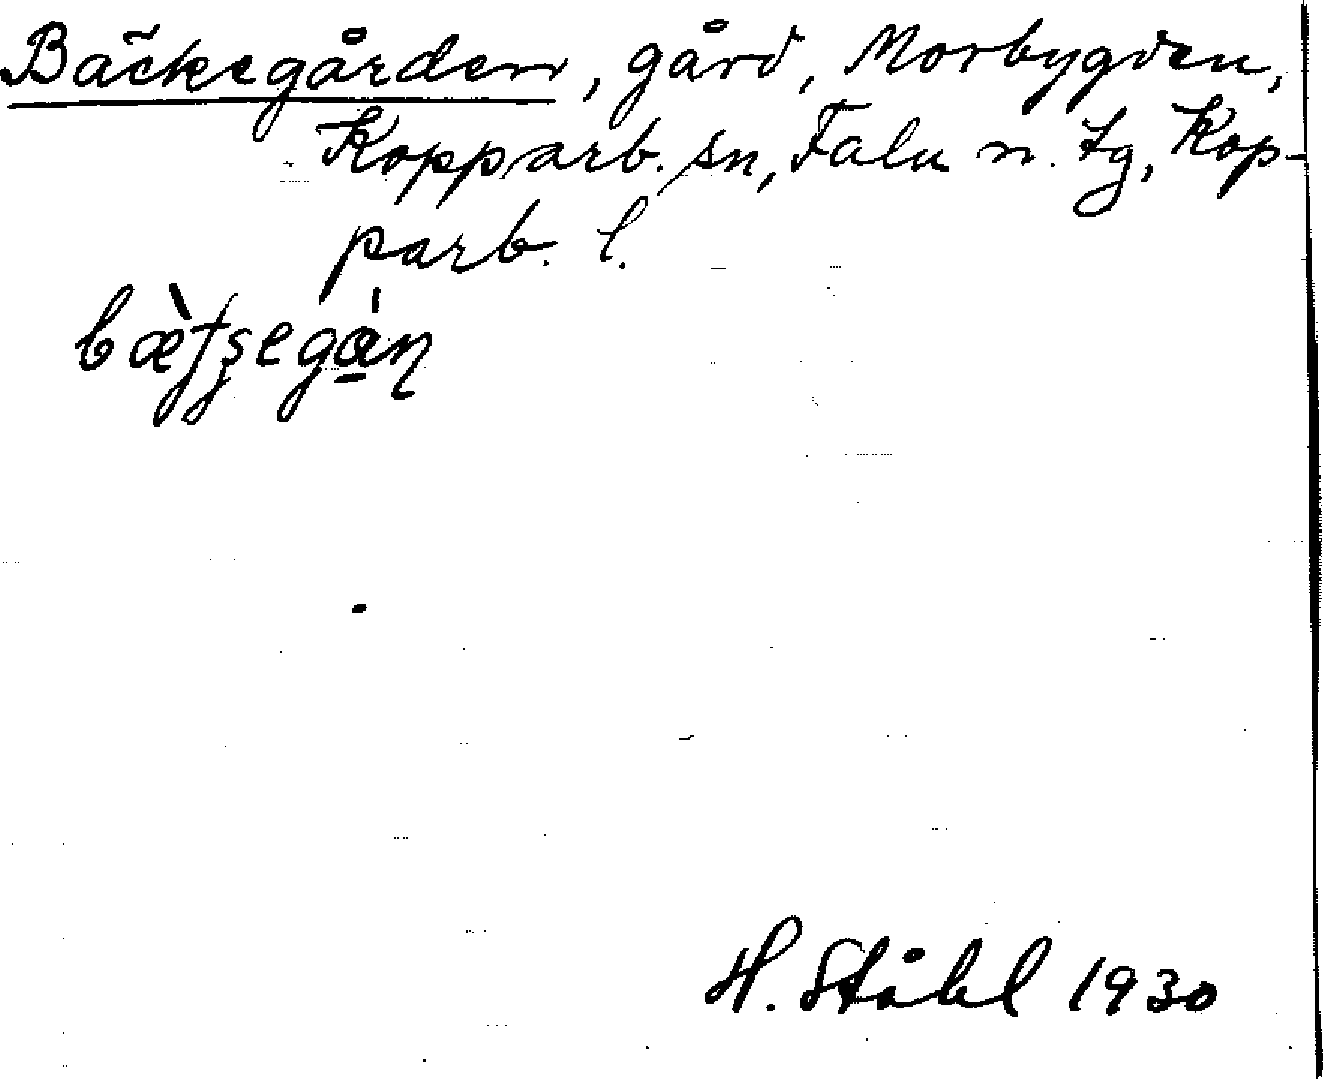 Bäckegården, gård, Morbygden,
Kopparb. sn, Falu n. tg, Kop-
parb. l.
H. Ståhl 1930